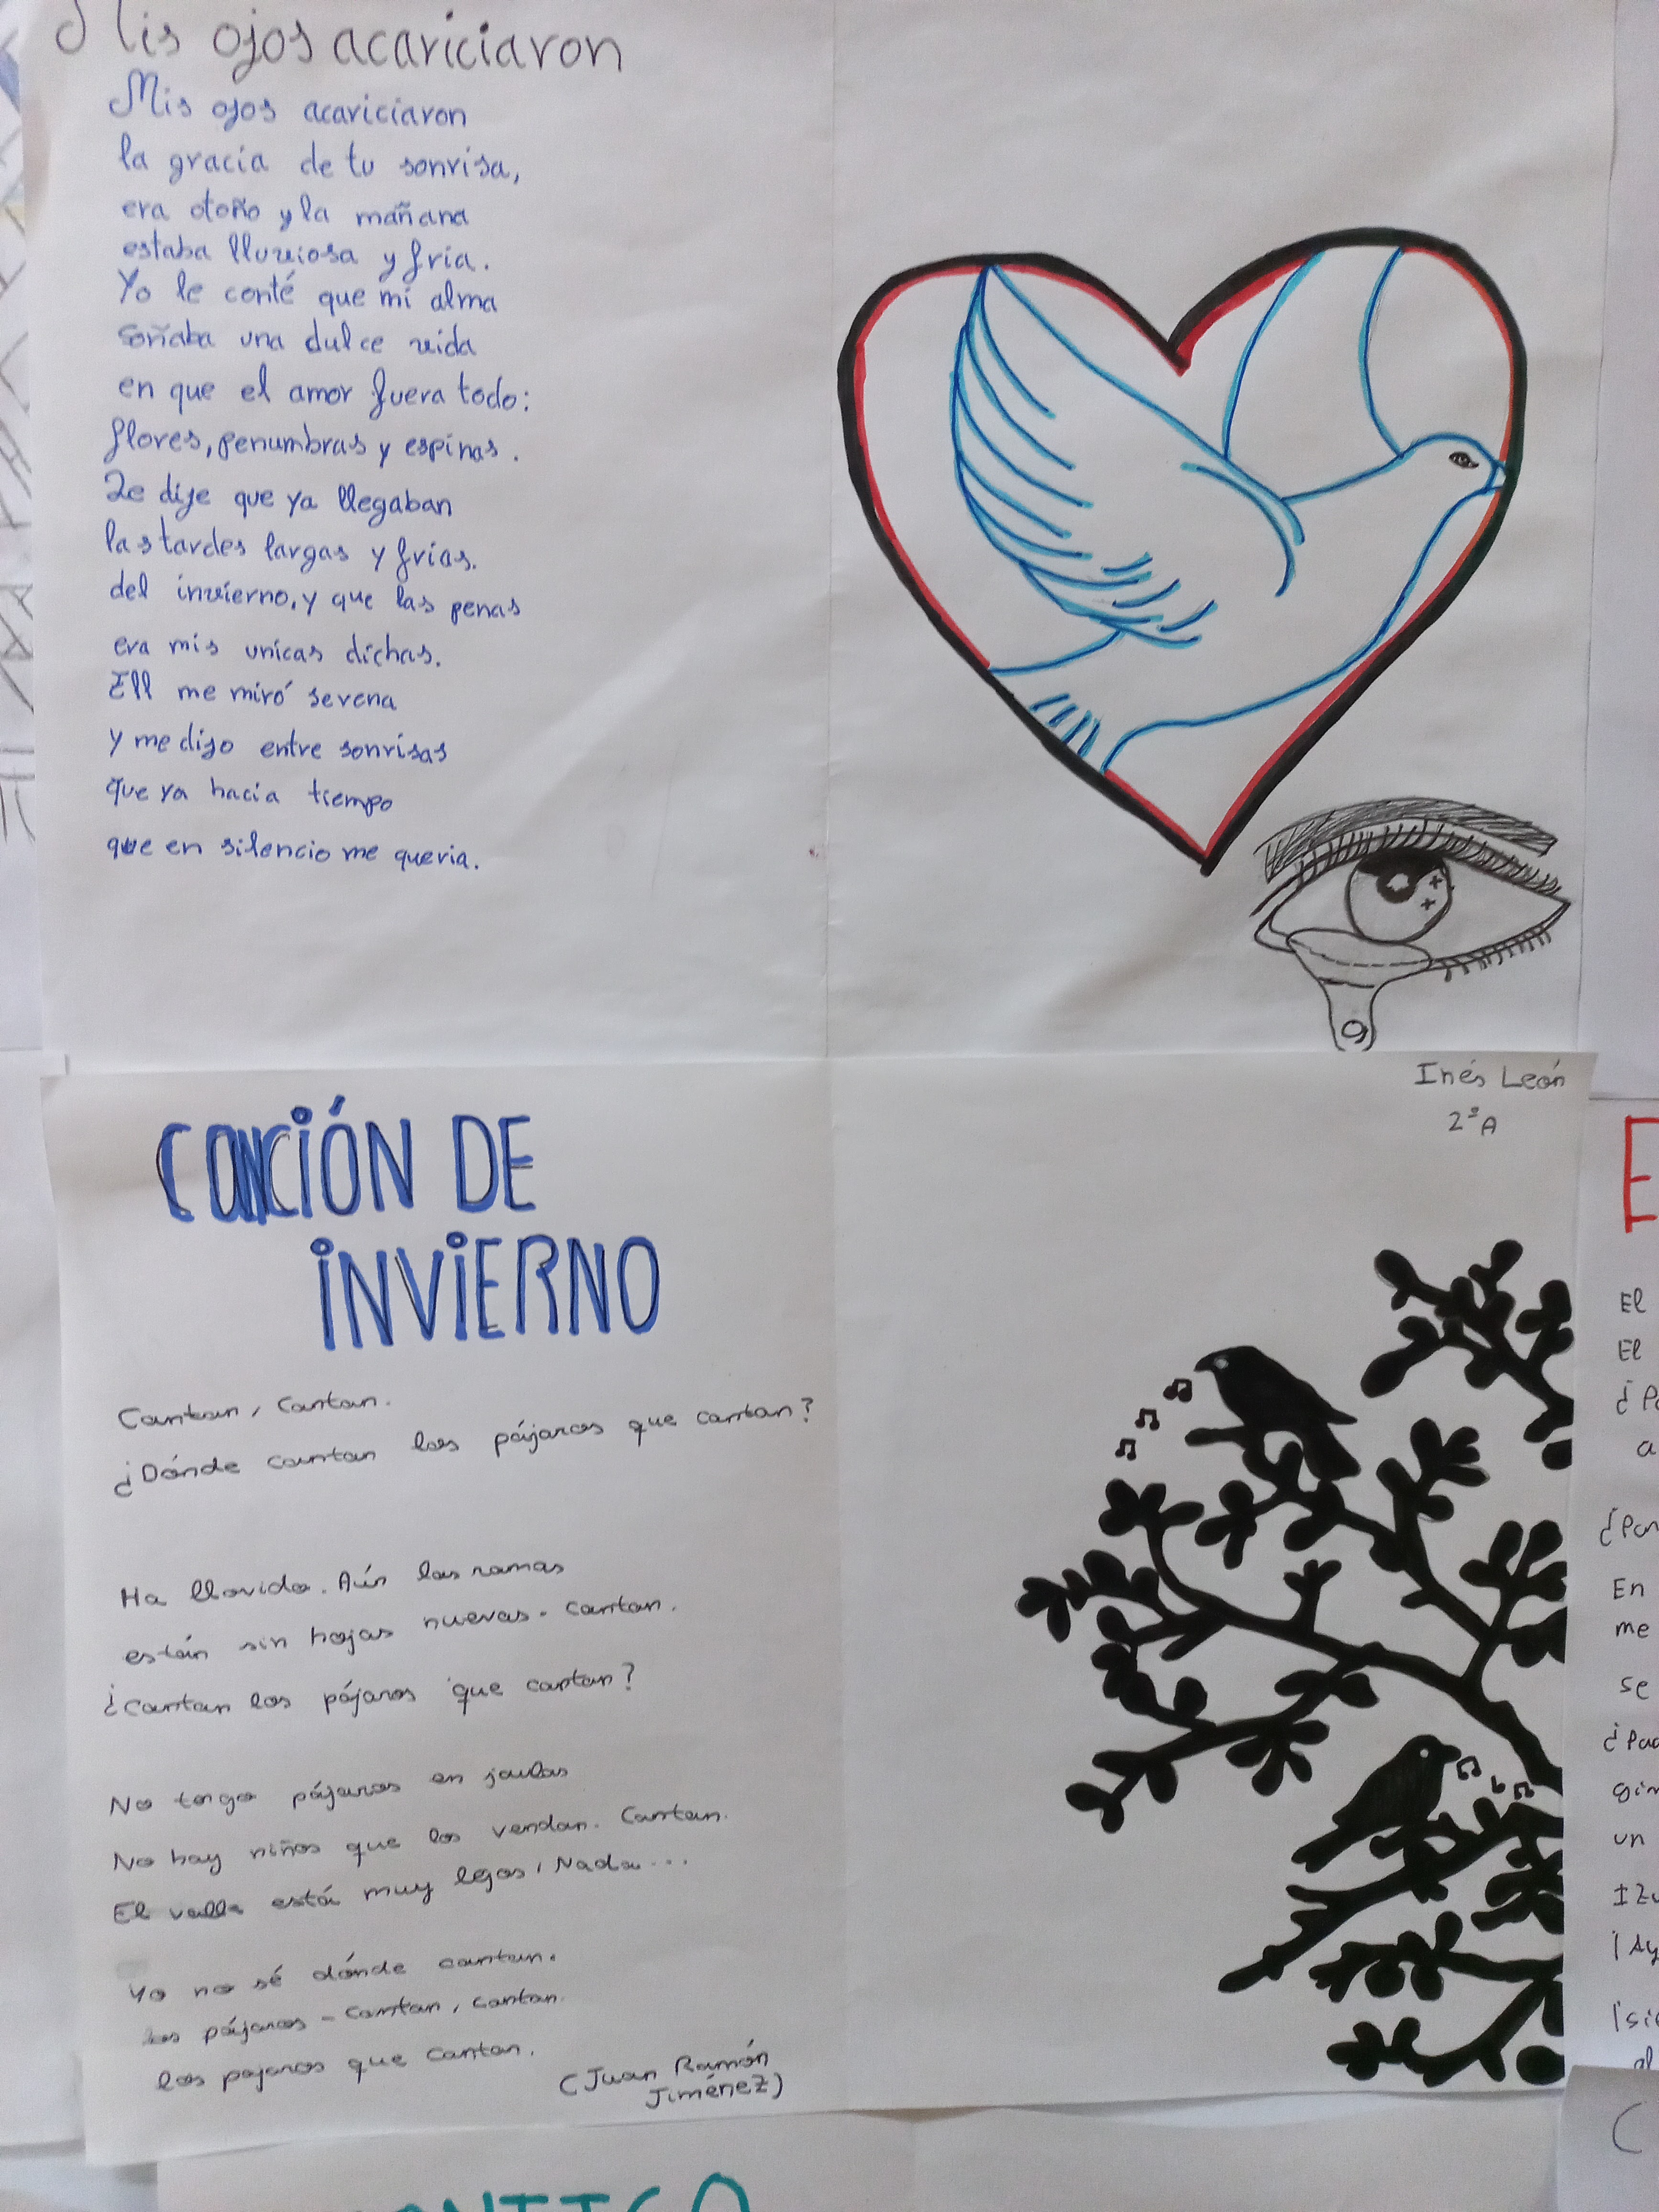 Mis ojos acariciaron
Mis ojos acariciaron
la gracia de tu sonrisa,
era otoño y la mañana
estaba lluviosa y fria.
Yo le conté que mi alma
soñaba una dulce vida
en que el amor fuera todo:
flores, penumbras y espinas.
Le dije que ya llegaban
las tardes largas y frias.
del invierno, y que las penas
era mis unicas dichas.
Ell me miró serena
y me dijo entre sonrisas
que ya hacia tiempo
que en silencio me queria.
Inés León
2ºA
CANCIÓN DE
INVIERNO
Cantan, Cantan.
¿Dónde cantan los pájaros que cantan?
Ha llovido. Aún las ramas
están sin hojas nuevas. Cantan.
¿Cantan los pájaros que cantan?
No tengo pájaros en jaulas
No hay niños que los vendan. Cantan.
El valle está muy lejos, Nada...
Yo no sé dónde cantan.
los pájaros - Cantan, cantan.
los pajaros que cantan.
(Juan Ramón
Jiménez)
E
El
El
¿P
a
¿Por
En
me
se
un